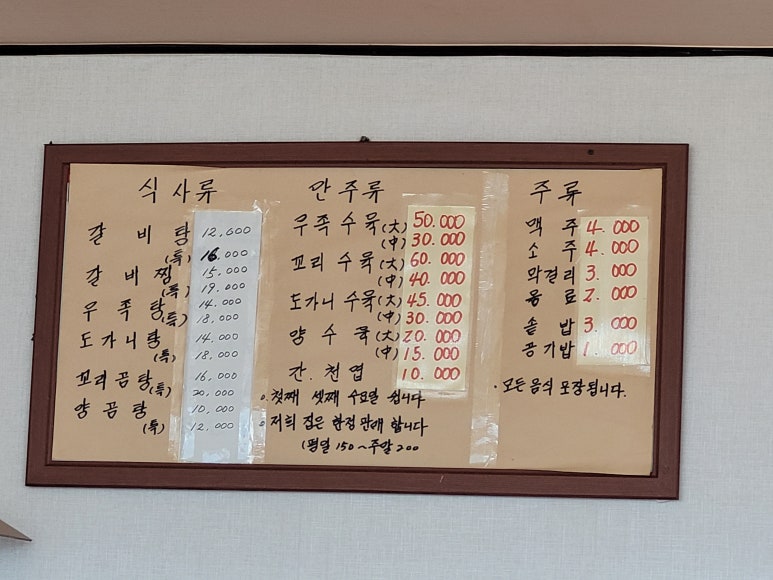 식사류
갈비탕 12,000
(특) 16.000
갈비찜 15.000
(특) 19.000
우족탕 14.000
(특) 18.000
도가니탕 14.000
(특) 18.000
꼬리곰탕 16,000
(특) 20,000
양곰탕 10,000
(특) 12.000
안주류
우족수육(大) 50.000
(中) 30.000
꼬리수육(大) 60.000
(中) 40.000
도가니수육(大) 45.000
(中) 30.000
양수육(大) 20.000
(中) 15.000
간.천엽 10.000
o.첫째 셋째 수요일 쉽니다
o.저희 집은 한정판매 합니다
(평일 150~주말 200
주류
맥주 4.000
소주 4.000
막걸리 3.000
음료 2.000
솥밥 3.000
공기밥 1.000
.모든음식 포장됩니다.